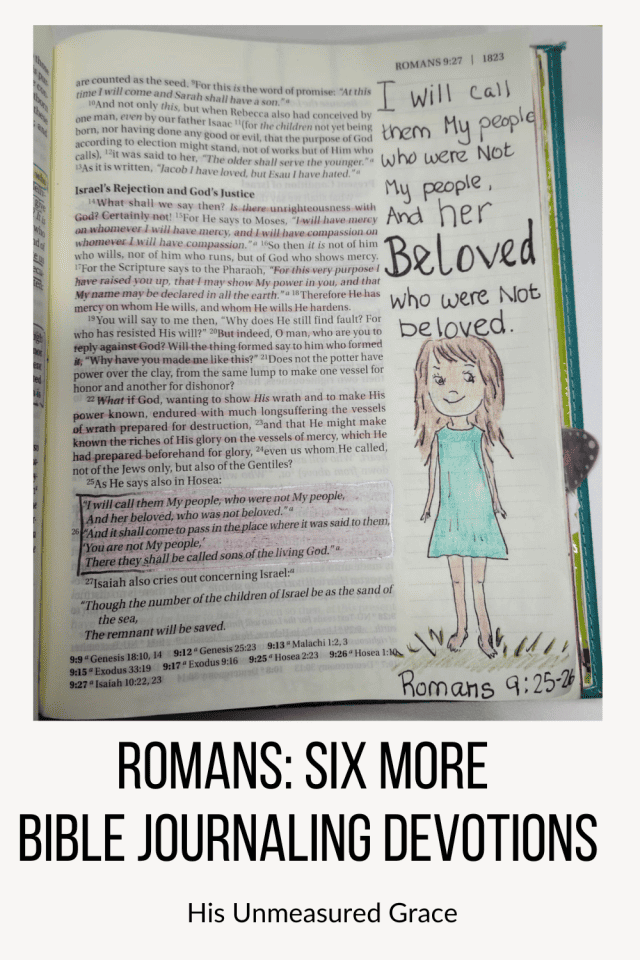 ROMANS 9:27 | 1823
are counted as the seed. ⁹For this is the word of promise: "At this
time I will come and Sarah shall have a son."ᵃ
¹⁰And not only this, but when Rebecca also had conceived by
one man, even by our father Isaac ¹¹(for the children not yet being
born, nor having done any good or evil, that the purpose of God
according to election might stand, not of works but of Him who
calls), ¹²it was said to her, "The older shall serve the younger."ᵃ
¹³As it is written, "Jacob I have loved, but Esau I have hated."ᵃ
Israel's Rejection and God's Justice
¹⁴What shall we say then? Is there unrighteousness with
God? Certainly not! ¹⁵For He says to Moses, "I will have mercy
on whomever I will have mercy, and I will have compassion on
whomever I will have compassion."ᵃ ¹⁶So then it is not of him
who wills, nor of him who runs, but of God who shows mercy.
¹⁷For the Scripture says to the Pharaoh, "For this very purpose I
have raised you up, that I may show My power in you, and that
My name may be declared in all the earth."ᵃ ¹⁸Therefore He has
mercy on whom He wills, and whom He wills He hardens.
¹⁹You will say to me then, "Why does He still find fault? For
who has resisted His will?" ²⁰But indeed, O man, who are you to
reply against God? Will the thing formed say to him who formed
it, "Why have you made me like this?" ²¹Does not the potter have
power over the clay, from the same lump to make one vessel for
honor and another for dishonor?
²²What if God, wanting to show His wrath and to make His
power known, endured with much longsuffering the vessels
of wrath prepared for destruction, ²³and that He might make
known the riches of His glory on the vessels of mercy, which He
had prepared beforehand for glory, ²⁴even us whom He called,
not of the Jews only, but also of the Gentiles?
²⁵As He says also in Hosea:
"I will call them My people, who were not My people,
And her beloved, who was not beloved."ᵃ
²⁶ "And it shall come to pass in the place where it was said to them,
'You are not My people,'
There they shall be called sons of the living God."ᵃ
²⁷Isaiah also cries out concerning Israel:ᵃ
"Though the number of the children of Israel be as the sand of
the sea,
The remnant will be saved.
9:9 ᵃ Genesis 18:10, 14 9:12 ᵃ Genesis 25:23 9:13 ᵃ Malachi 1:2, 3
9:15 ᵃ Exodus 33:19 9:17 ᵃ Exodus 9:16 9:25 ᵃ Hosea 2:23 9:26 ᵃ Hosea 1:10
9:27 ᵃ Isaiah 10:22, 23
I will call
them My people
who were Not
My people,
And her
Beloved
who were Not
beloved.
Romans 9:25-26
ROMANS: SIX MORE
BIBLE JOURNALING DEVOTIONS
His Unmeasured Grace